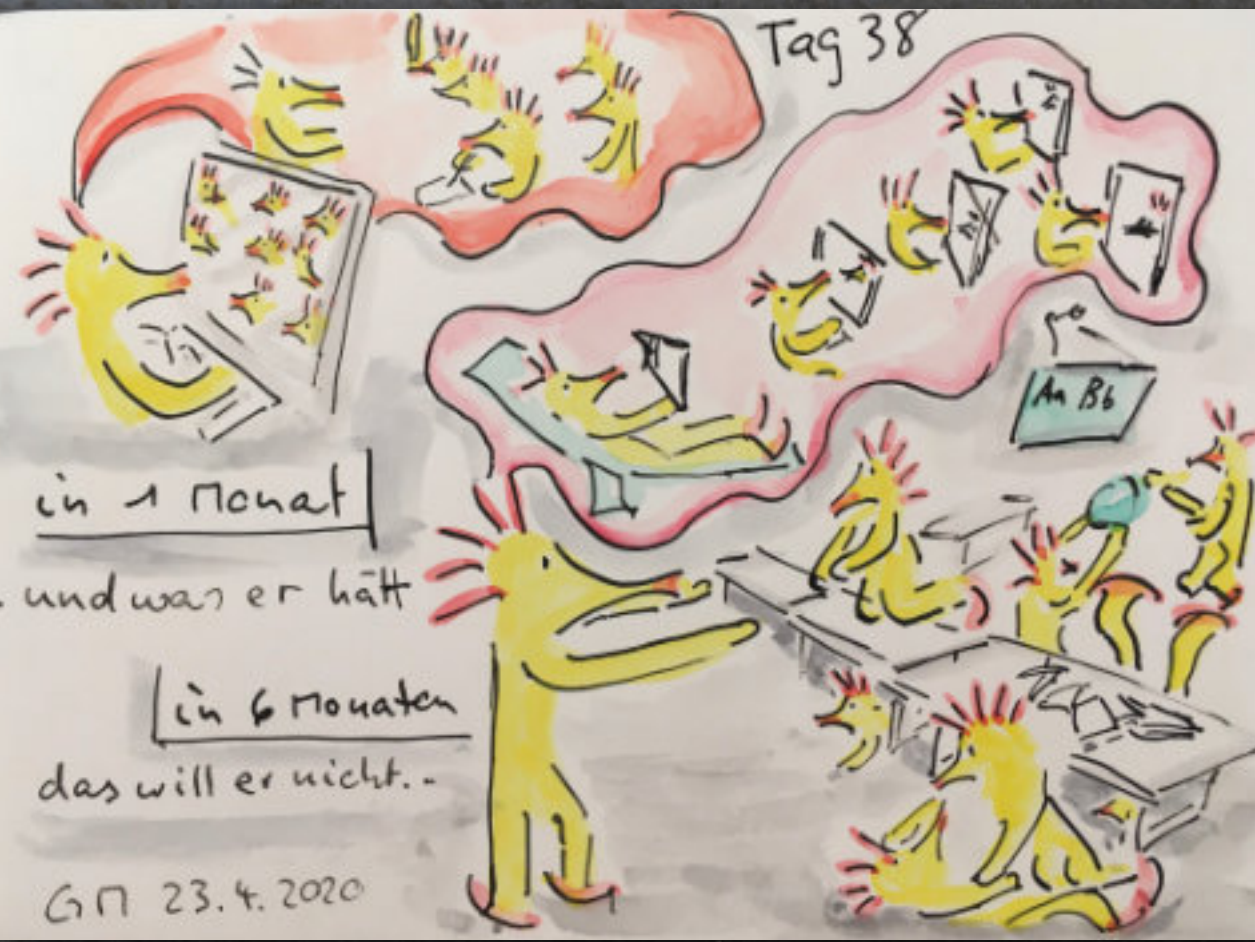 Tag 38
Aa Bb
in 1 Monat
. und was er hätt
in 6 Monaten
das will er nicht..
GM 23.4.2020